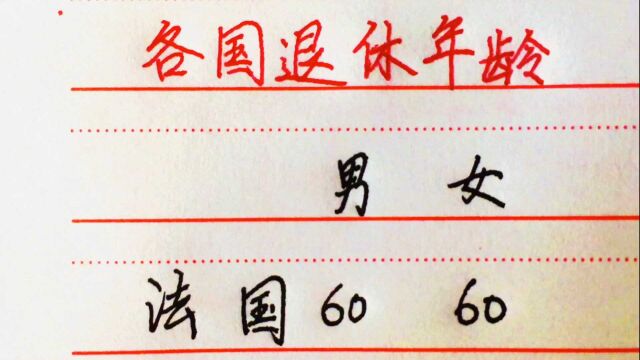 各国退休年龄
男 女
法国 60 60